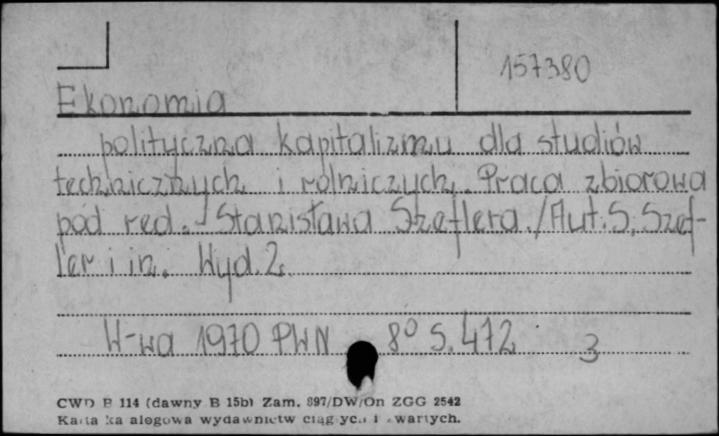 157380
Ekonomia
polityczna kapitalizmu dla studiów
technicznych i rolniczych. Praca zbiorowa
pod red. Stanisława Szeflera. /Aut. S. Szef-
ler i in. Wyd. 2
W-wa 1970 PWN 8° s. 472 3
CWD B 114 (dawny B 15b) Zam. 897/DW/On ZGG 2542
Karta ka alogowa wydawnictw ciągłyc.. i .wartych.